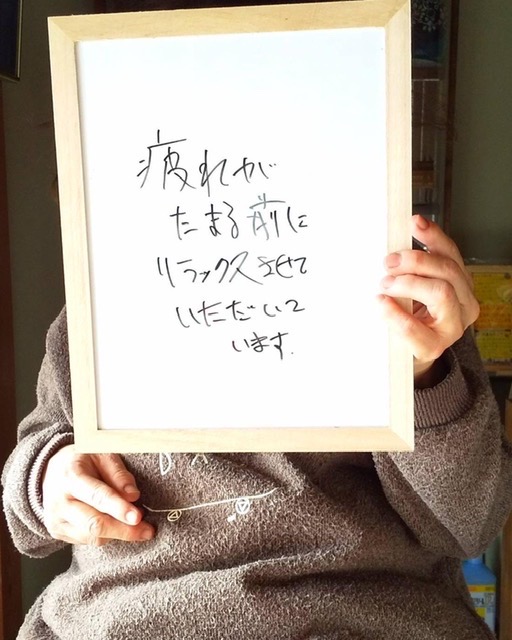 疲れが
たまる前に
リラックスさせて
いただいて
います.